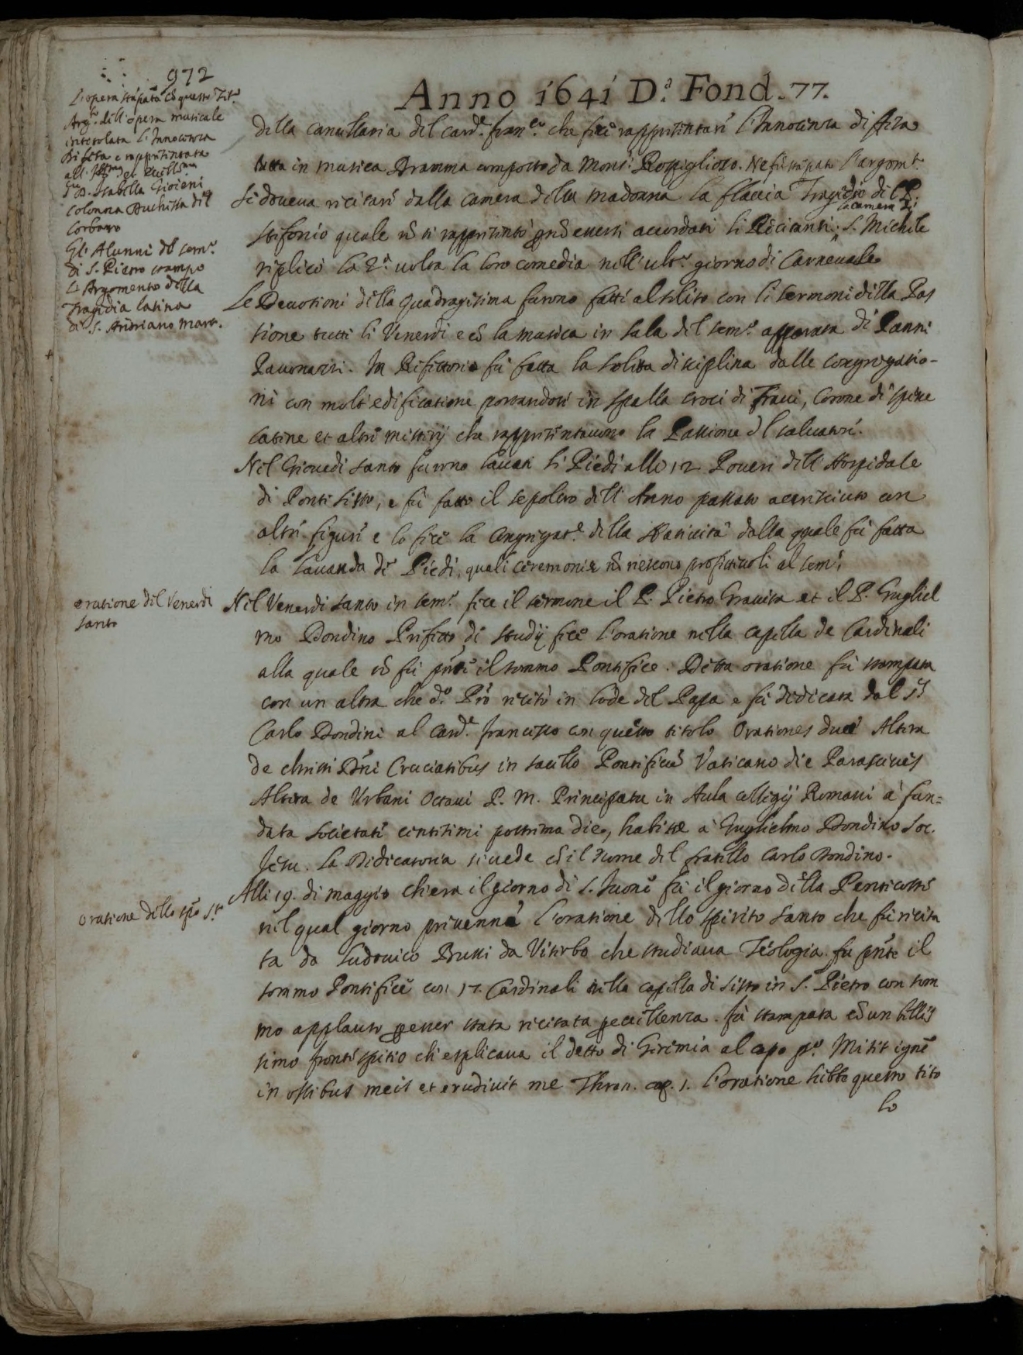 972
L'opera stãpata cõ questo Tit.º
Arg.to dell'opera musicale
intitolata L'Innocenza
Difesa e rappresentata
all' Ill.ma et Eccell.ma
D. Isabella Gioieni
Colonna Duchessa del
Corbaro
Gl'Alunni del Sem.º
di S. Pietro stampo
L'Argomento della
Tragedia latina
di S. Adriano mart.
Anno 1641 D.ª Fond. 77.
della Cancellaria del Card.e Fran.co che fece rappresentari l'Innocenza difesa
tutta in musica Dramma composto da Mons. Rospiglioso. Ne fu stãpato l'argom.to
Si doveva recitari dalla Camera della Madonna la Flaccia Tragedia del P.
Stefonio quale nõ si rappresentò p nõ essersi accordati li Recitanti; la camera di S. Michele
replicò la 2.ª volta la loro comedia nell'ult.º giorno di Carnevale
Le Devotioni della Quadragesima furono fatte al solito con li sermoni della Pas
sione tutti li Venerdi e cõ la musica in sala del Sem.º apparata di Panni
Pavonazzi. In Refettorio fù fatta la solita disciplina dalle Congregatio-
ni con molta edificatione portandosi in spalla Croci di Travi, Corone di spine
Catine et altri misterij che rappresentavano la Passione del Salvatori.
Nel Giovedi Santo furono lavati li Piedi alli 12 Poveri dell'Hospidale
di Ponte Sisto, e fù fatto il sepolcro dell'Anno passato accresciuto con
altri figuri e lo fece la Congregat.e della Natività dalla quale fù fatta
la lavanda de Piedi, quali ceremonie nõ riescono profittevoli al Sem.º
oratione del Venerdi
Santo
Nel Venerdi Santo in Sem.º fece il sermone il P. Pietro Gravita et il P. Gugliel
mo Dondino Prefetto di Studij fece l'oratione nella Capella de Cardinali
alla quale nõ fù pñte il sommo Pontefice. Detta oratione fù stampata
con un altra che d.º Prõ recitò in lode del Papa e fù dedicata dal S.r
Carlo Dondini al Card.e Francesco con questo titolo Orationes duae Altera
de christi Dñi Cruciatibus in sacello Pontificũ Vaticano die Parasceves
Altera de Urbani Octavi P. M. Principatu in Aula collegij Romani à fun=
data Societati centesimi postrima die, habitae à Guglielmo Dondino Soc.
Jesu. La Dedicatoria si vede cõ il nome del fratello Carlo Dondino.
oratione dello Spõ S.to
Alli 19. di maggio ch'era il giorno di S. Ivone fù il giorno della Pentecoste
nel qual giorno pervenne l'oratione dello Spirito Santo che fù recita
ta da Ludovico Brussi da Viterbo che studiava Teologia fù pñte il
sommo Pontefice con 17. Cardinali nella capella di Sisto in S. Pietro con som
mo applauso p esser stata recitata p eccellenza. fù stampata cõ un bellis
simo frontespitio ch'esplicava il detto di Geremia al capo p.º Misit ignẽ
in ossibus meis et erudivit me Thren. cap. 1. L'oratione hebbe questo tito
lo